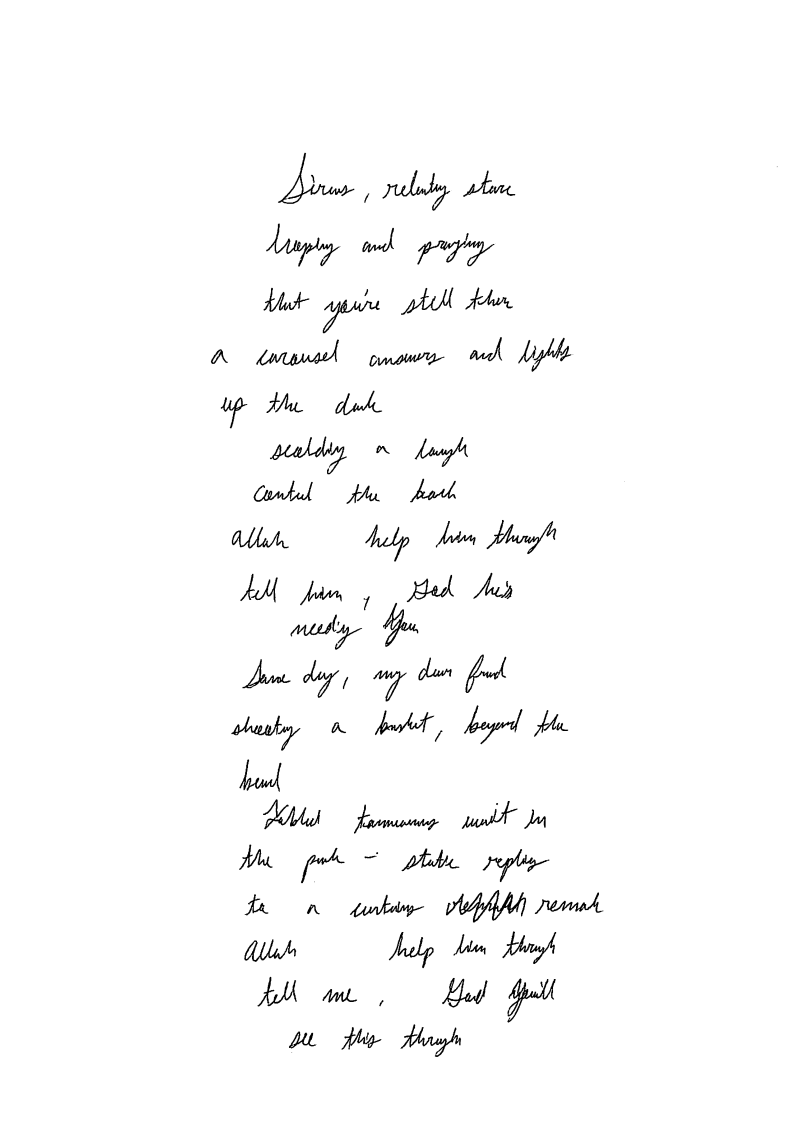 Sirius, relently stare
hoping and praying
that you're still there
a carousel answers and lights
up the dark
scalding a laugh
control the beach
allah help him through
tell him, God he's
needing You
Some day, my dear friend
shooting a basket, beyond the
bend
Fabled tomorrows wait in
the park - static reply
to a curtains remark
Allah help him through
tell me, God You'll
see this through